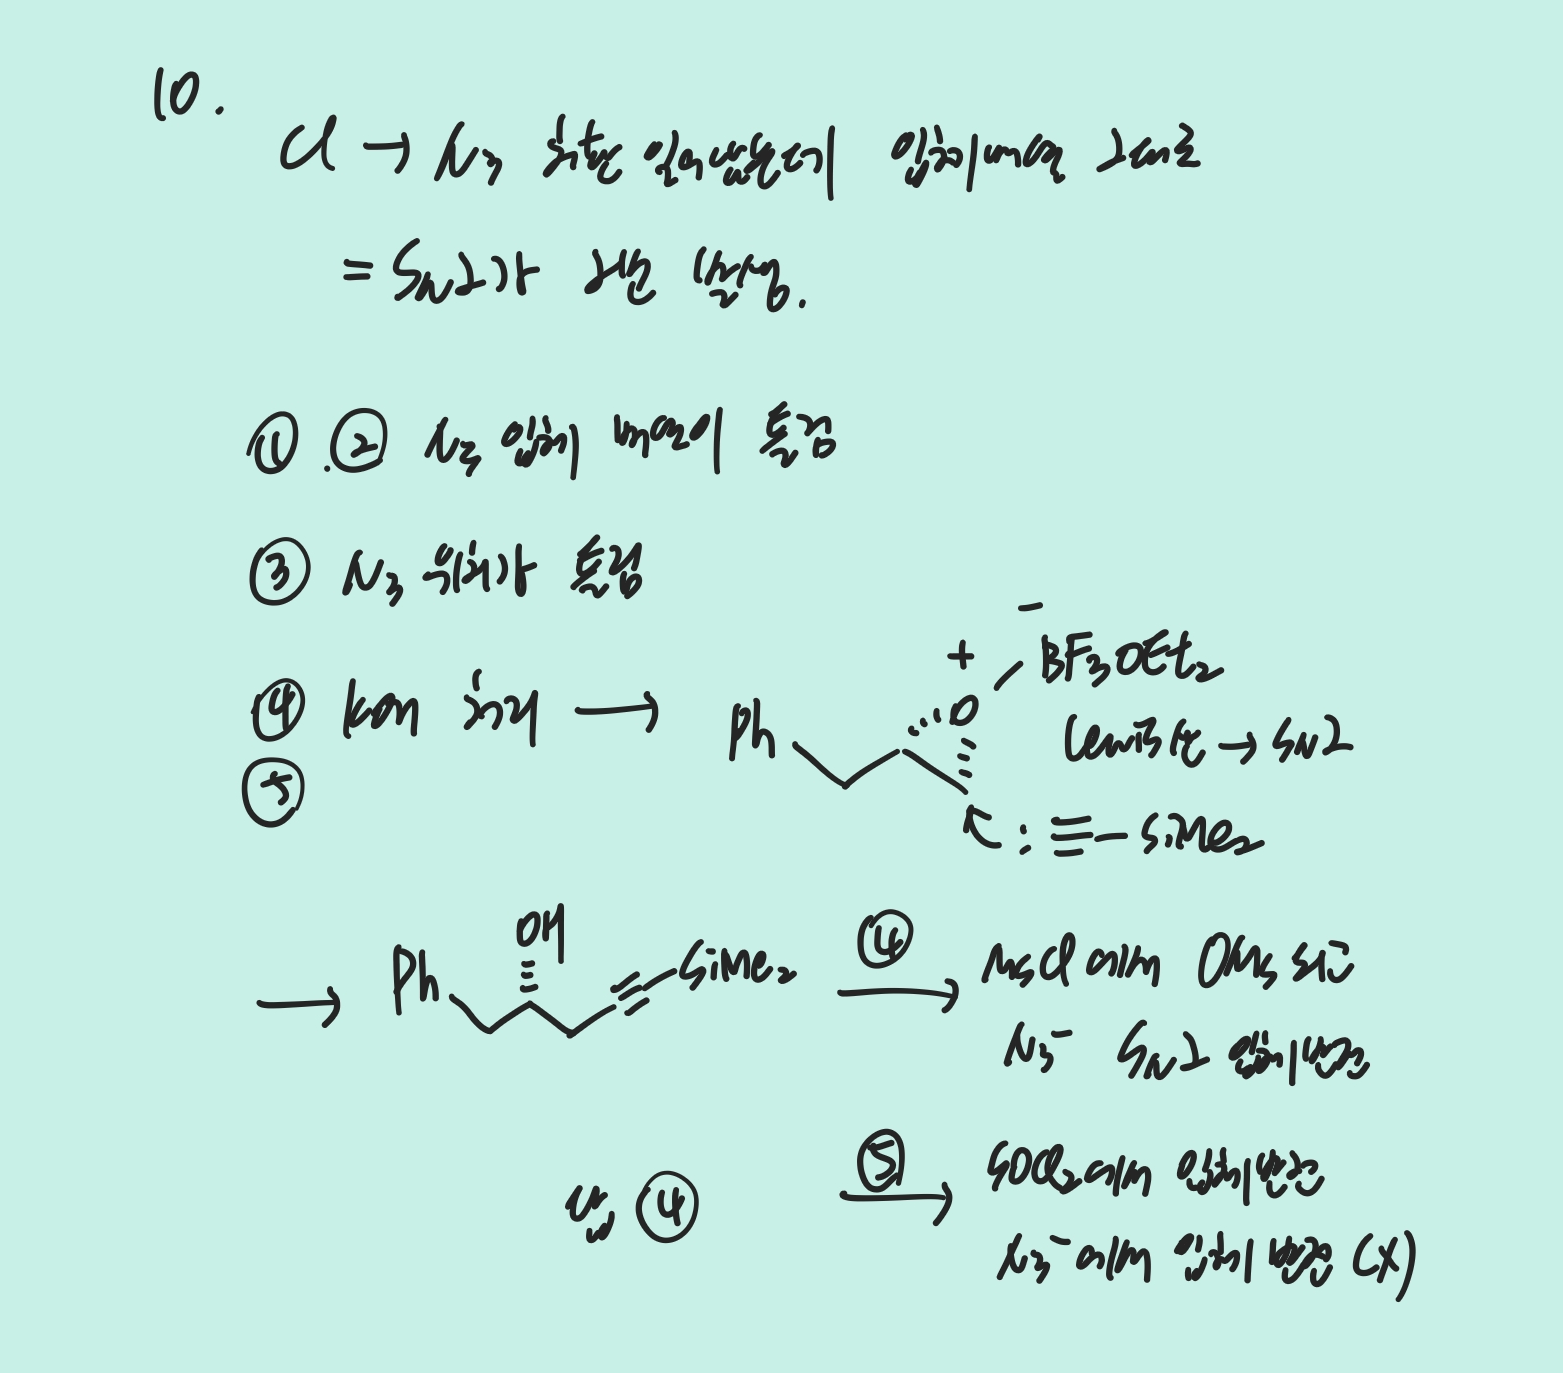 10.
Cl → N3 치환 일어났는데 입체배열 그대로
= SN2가 2번 발생.
① ② N3 입체 배열이 틀림
③ N3 위치가 틀림
④ KOH 처리 →
⑤
Ph O + - BF3OEt2
Lewis산 → SN2
: ≡ - SiMe2
→ Ph OH SiMe2
④ → MsCl 에서 OMs
N3- SN2 입체반전
⑤ → SOCl2에서 입체반전
N3-에서 입체반전 (X)
답 ④